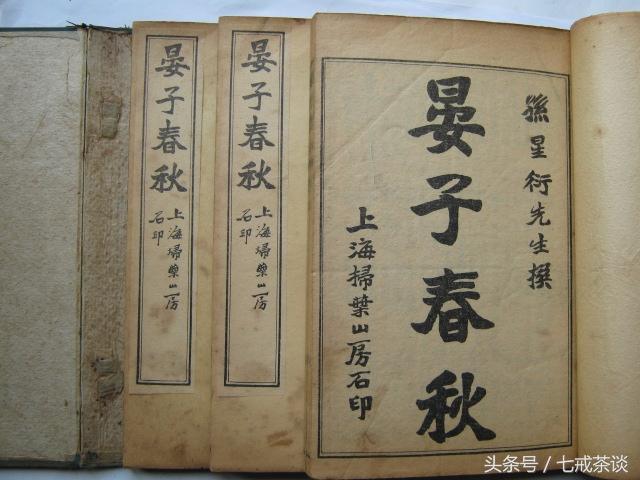 孫星衍先生撰
晏子春秋
上海掃葉山房石印
晏子春秋
上海掃葉山房
石印
晏子春秋
上海掃葉山房
石印
头条号／七戒茶谈